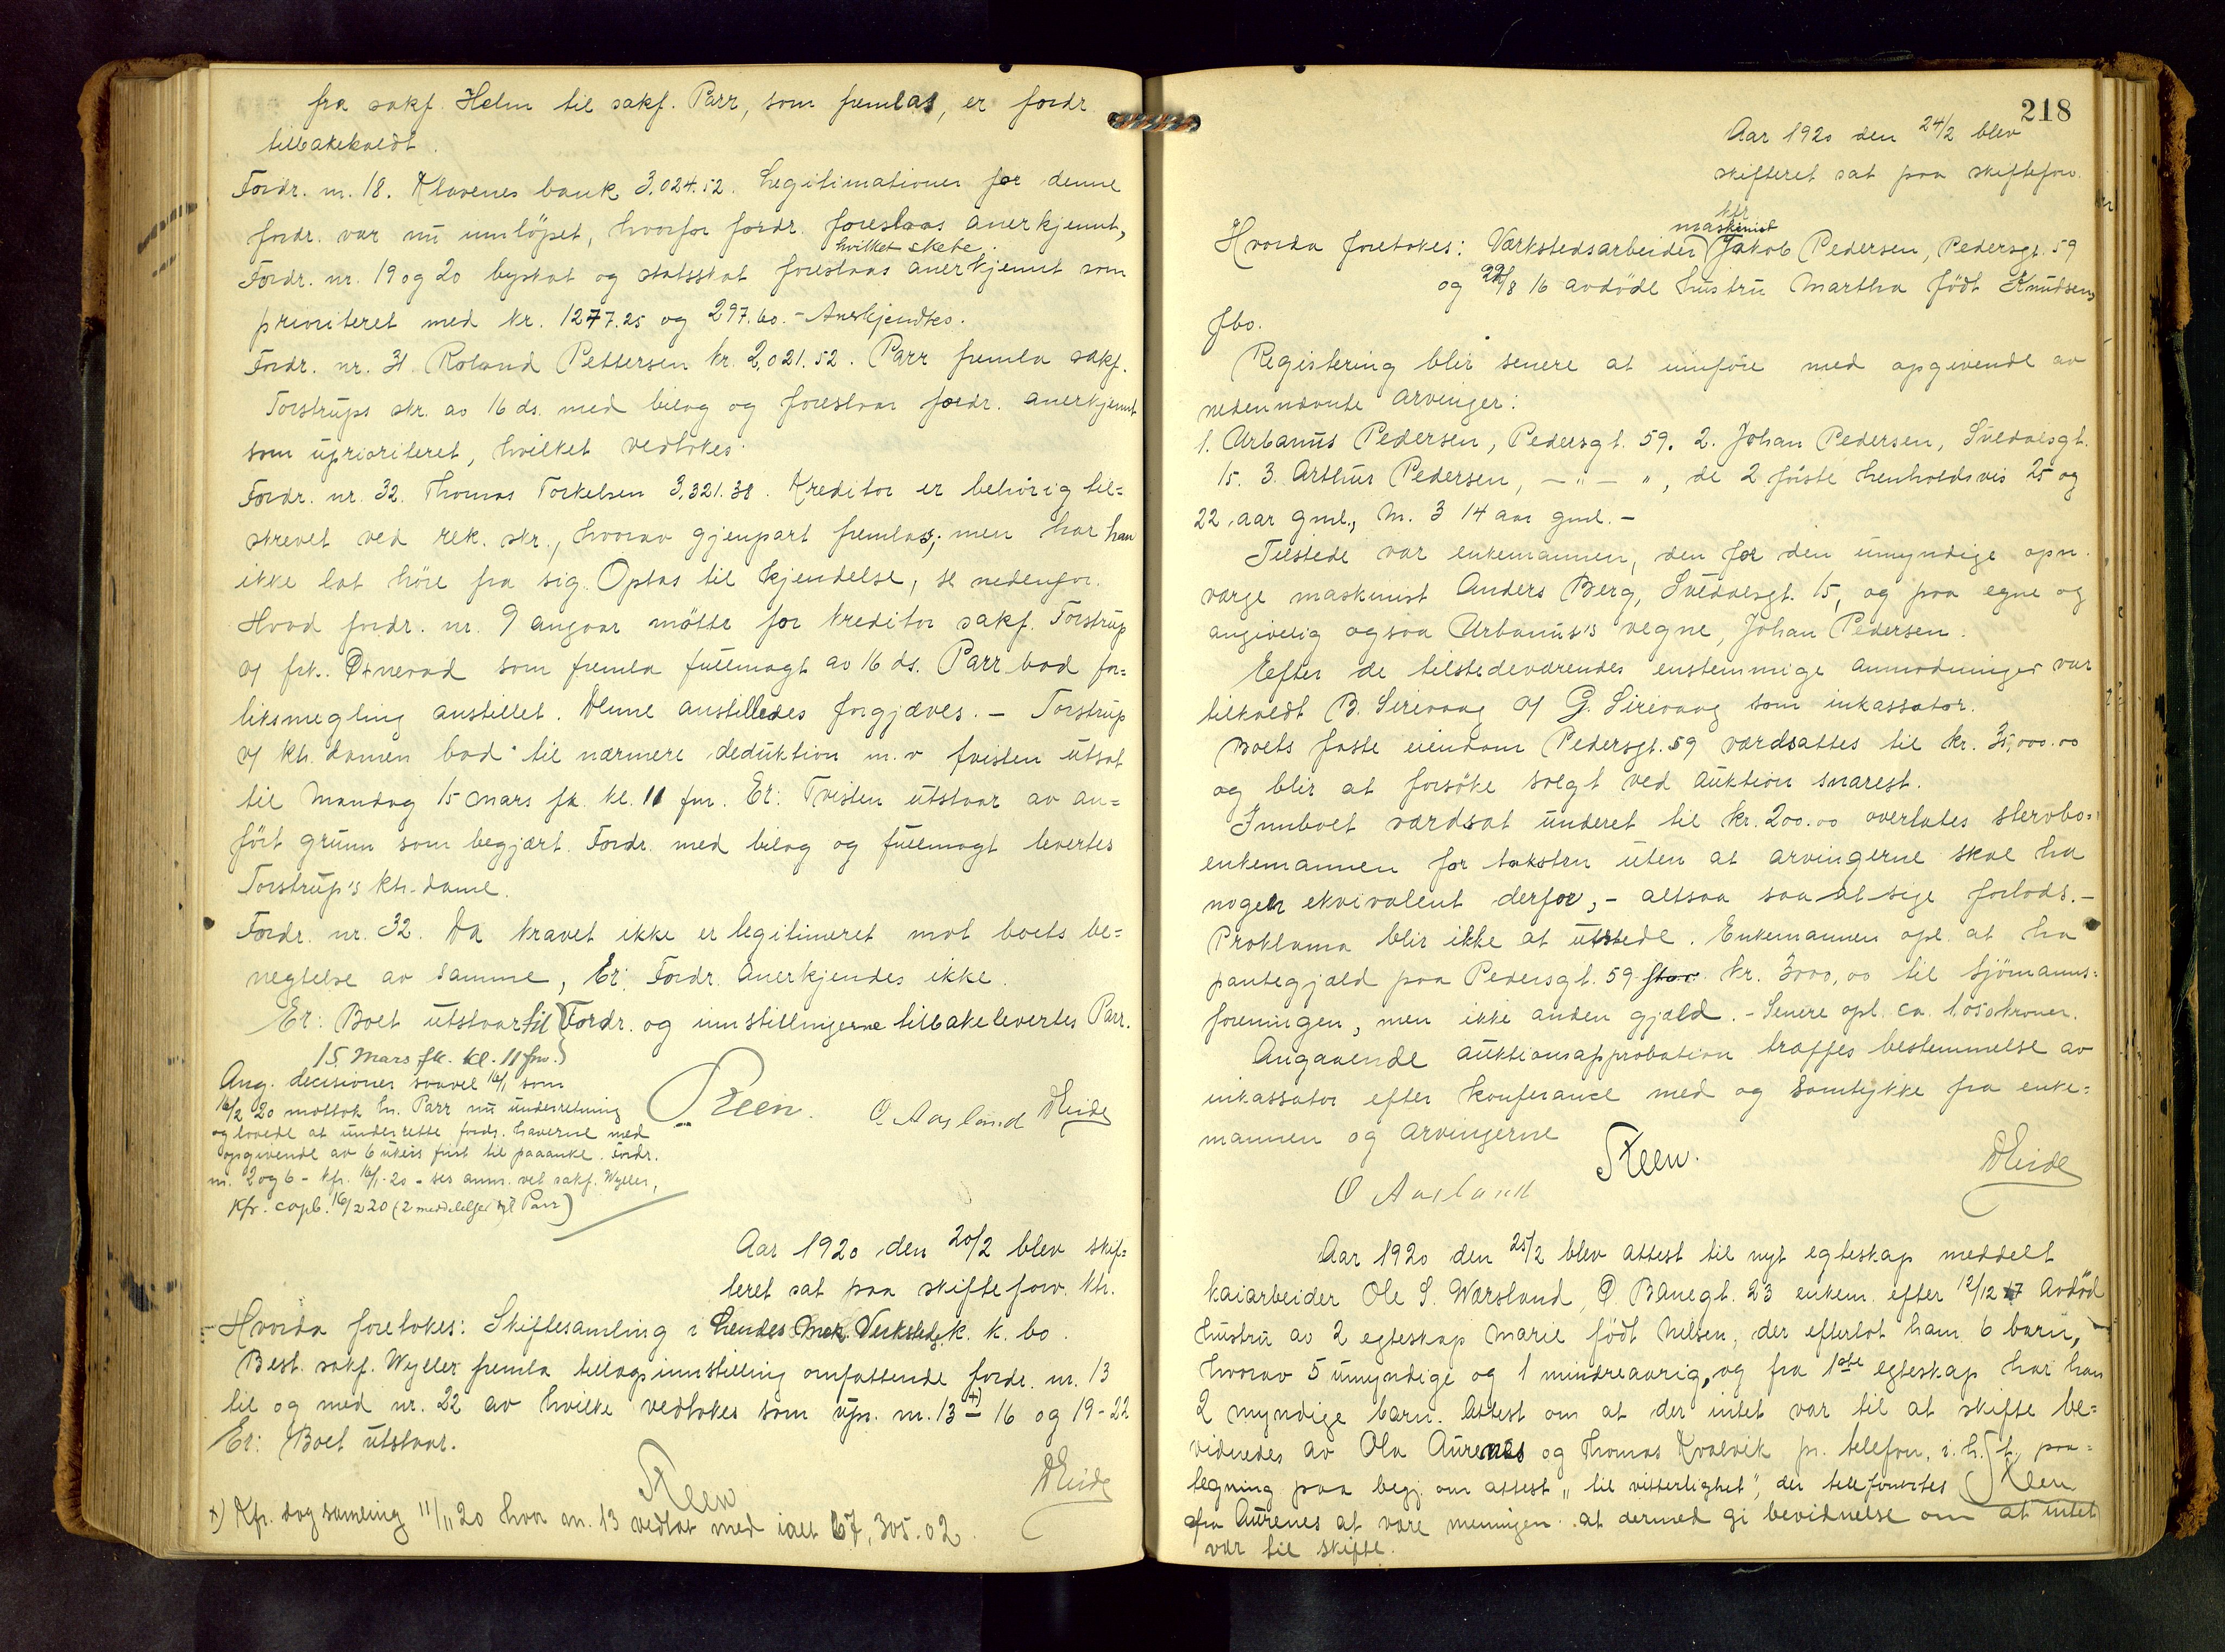 fra sakf. Helm til sakf. Parr, som fremlas, er fordr
tilbakekaldt.
Fordr. nr. 18. Klavenes bank 3,024.52. Legitimationen for denne
fordr. var nu innløpet, hvorfor fordr. foreslaas anerkjennt,
hvilket skete.
Fordr. nr. 19 og 20 byskat og statsskat foreslaas anerkjennt som
prioriteret med kr. 1277.25 og 297.60. - Anerkjendtes.
Fordr. nr. 31. Roland Pettersen kr. 2,021.52. Parr fremla sakf.
Torstrups skr. av 16 ds. med bilag og foreslaar fordr. anerkjennt
som uprioriteret, hvilket vedtokes.
Fordr. nr. 32. Thomas Torkelsen 3,321.38. Kreditor er behørig til=
skrevet ved rek. skr., hvorav gjenpart fremlas; men har han
ikke lat høre fra sig. Optas til kjendelse, se nedenfor.
Hvad fordr. nr. 9 angaar møtte for kreditor sakf. Torstrup
v/ frk. Øxnevad som fremla fullmagt av 16 ds. Parr bad for=
liksmegling anstillet. Denne anstilledes forgjæves. - Torstrup
v/ ktr. damen bad til nærmere deduktion m.v tvisten utsat
til Mandag 15 mars fk. kl. 11 fm. Er: Tvisten utstaar av an=
ført grunn som begjært. Fordr. med bilag og fullmagt levertes
Torstrup's ktr-dame.
Fordr. nr. 32. Da kravet ikke er legitimeret mot boets be=
negtelse av samme, Er: Fordr. anerkjendes ikke.
Er: Boet utstaar til Fordr. og innstillingerne tilbakelevertes Parr.
15 Mars fk. kl. 11 fm.
Ang. decisioner saavel 16/1 som
16/2 20 mottok hr. Parr nu underretning
og lovede at underrette fordr. haverne med
opgivende av 6 ukers frist til paaanke. Fordr.
nr. 2 og 6 - kfr. 16/1-20 - ses anm. vet sakf. Wyller,
Kfr. copb. 16/2 20 (2 meddelelser tgl Parr)
Steen. O Aasland DEide
Aar 1920 den 20/2 blev skif=
teret sat paa skifteforv. ktr.
Hvorda foretokes: Skiftesamling i Lendes Mek. Verksteds k. k. bo.
Best. sakf. Wyller fremla tillagsinnstilling omfattende fordr. nr. 13
til og med nr. 22 av hvilke vedtokes som upr. nr. 13 +) - 16 og 19-22
Er: Boet utstaar.
Steen DEide
x) Kfr. dog samling 11/11 20 hvor nr. 13 vedtat med ialt 67,305.02.
218
Aar 1920 den 24/2 blev
skifteret sat paa skifteforv.
kfr
maskinist
Hvorda foretokes: Værkstedsarbeider Jakob Pedersen, Pedersgt. 59
og 22/8 16 avdøde hustru Martha født Knudsens
fbo.
Registering blir senere at innføre med opgivende av
nedennævnte arvinger:
1. Urbanus Pedersen, Pedersgt. 59. 2. Johan Pedersen, Svedalsgt.
15. 3. Arthur Pedersen, - " - ", de 2 første henholdsvis 25 og
22 aar gml., nr. 3 14 aar gml. -
Tilstede var enkemannen, den for den umyndige opn.
værge maskinist Anders Berg, Svedalsgt. 15, og paa egne og
angivelig ogsaa Urbanus's vegne, Johan Pedersen.
Efter de tilstedeværendes enstemmige anmodninger var
tilkaldt B. Sirevaag v/ G. Sirevaag som inkassator.
Boets faste eiendom Pedersgt. 59 værdsattes til kr. 35,000.00
og blir at forsøke solgt ved auktion snarest.
Innboet værdsat underet til kr. 200.00 overlates stervbo=
enkemannen for taksten uten at arvingerne skal ha
nogen ekvivalent derfor, - altsaa saa-at-sige forlods. -
Proklama blir ikke at utstede. Enkemannen opl. at ha
pantegjæld paa Pedersgt. 59 kr. 3000,00 til sjømanns=
foreningen, men ikke anden gjæld. - Senere opl. ca. 1,050 kroner.
Angaaende auktionsapprobation træffes bestemmelse av
inkassator efter konferance med og samtykke fra enke=
mannen og arvingerne
Steen. DEide
O Aasland
Aar 1920 den 25/2 blev attest til nyt egteskap meddelt
kaiarbeider Ole S. Warsland, Ø. Banegt. 23 enkem. efter 12/12 17 avdød
hustru av 2 egteskap Marie født Nilsen, der efterlot ham 6 barn,
hvorav 5 umyndige og 1 mindreaarig, og fra 1ste egteskap har han
2 myndige barn. Attest om at der intet var til at skifte be=
vidnedes av Ola Aurenes og Thomas Kvalvik pr. telefon, i. h. t. paa=
tegning paa begj. om attest "til vitterlighet", der telefonertes Steen
fra Aurenes at være meningen at dermed gi bevidnelse om at intet
var til skifte.